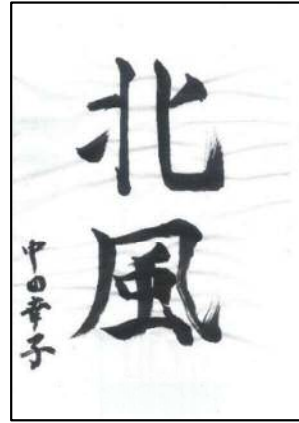 北風
中田幸子